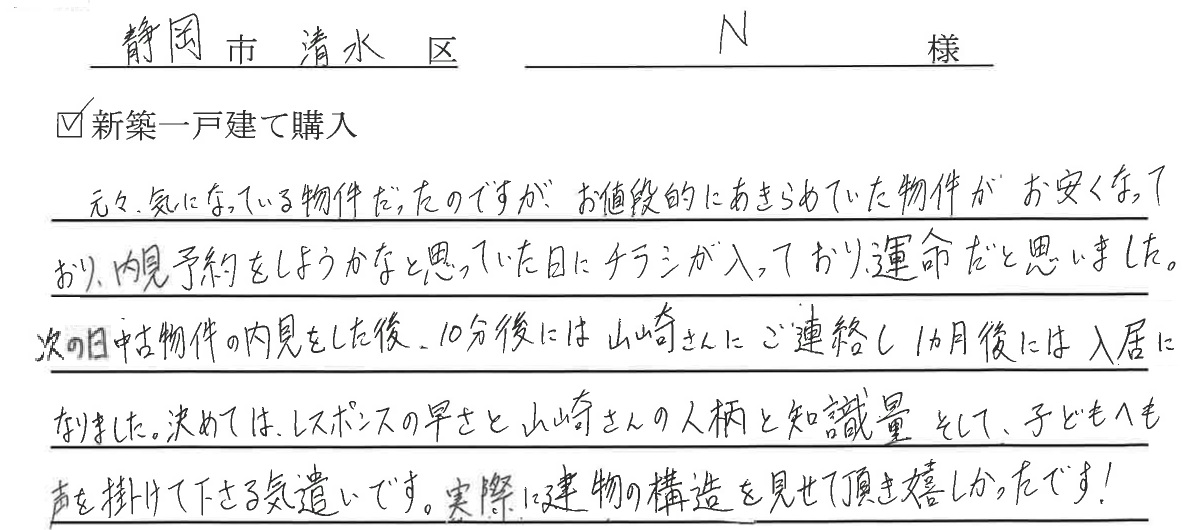 静岡市 清水区 N 様
☑新築一戸建て購入
元々、気になっている物件だったのですが、お値段的にあきらめていた物件が お安くなって
おり、内見予約をしようかなと思っていた日にチラシが入っており、運命だと思いました。
次の日中古物件の内見をした後、10分後には山崎さんにご連絡し 1ヵ月後には入居に
なりました。決めては、レスポンスの早さと山崎さんの人柄と知識量 そして、子どもへも
声を掛けて下さる気遣いです。実際に建物の構造を見せて頂き嬉しかったです！